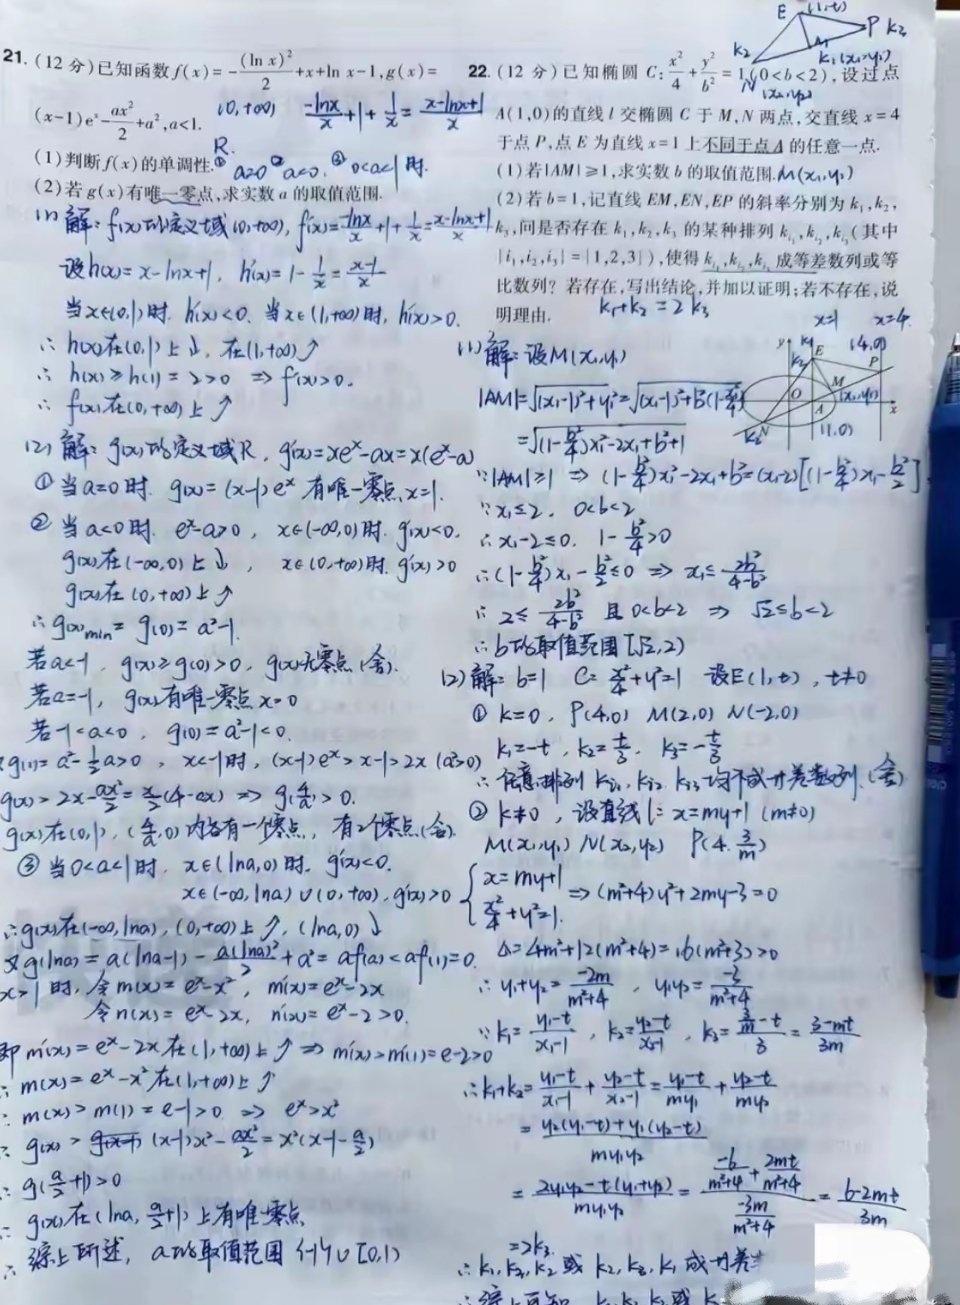 21. (12 分) 已知函数 f(x) = -(ln x)²/2 + x + ln x - 1, g(x) =
(x-1)eˣ - ax²/2 + a², a<1.
(0,+∞) -lnx/x + 1 + 1/x = x-lnx+1/x
R.
(1) 判断 f(x) 的单调性. ① a=0 ② a<0. ③ 0<a<1 时.
(2) 若 g(x) 有唯一零点, 求实数 a 的取值范围.
(1) 解: f(x)的定义域(0,+∞), f'(x)= -lnx/x +1+ 1/x = x-lnx+1/x
设h(x)= x-lnx+1, h'(x)=1- 1/x = x-1/x
当x∈(0,1)时. h'(x)<0. 当x∈(1,+∞)时, h'(x)>0.
∴ h(x)在(0,1)上↓, 在(1,+∞)↗
∴ h(x)≥h(1)=2>0 ⇒ f'(x)>0.
∴ f(x)在(0,+∞)上↗
(2) 解: g(x)的定义域R, g'(x)=xeˣ-ax=x(eˣ-a)
① 当a=0时. g(x)=(x-1)eˣ 有唯一零点x=1.
② 当a<0时. eˣ-a>0, x∈(-∞,0)时. g'(x)<0.
g(x)在(-∞,0)上↓, x∈(0,+∞)时. g'(x)>0
g(x)在(0,+∞)上↗
∴ g(x)min= g(0)=a²-1.
若a<-1, g(x)≥g(0)>0, g(x)无零点(舍).
若a=-1, g(x)有唯一零点x=0
若-1<a<0, g(0)=a²-1<0.
又g(1)= a²- 1/2 a>0, x<-1时, (x-1)eˣ > x-1>2x (a²>0)
g(x)>2x- ax²/2 = x/2(4-ax) ⇒ g(4/a)>0.
g(x)在(0,1), (4/a,0)内各有一个零点, 有2个零点(舍).
③ 当0<a<1时, x∈(lna,0)时. g'(x)<0.
x∈(-∞,lna)∪(0,+∞), g'(x)>0
∴g(x)在(-∞,lna), (0,+∞)上↗, (lna,0)↓
又g(lna)=a(lna-1)- a(lna)²/2 +a²=af(a)<af(1)=0.
x>1时, 令m(x)=eˣ-x², m'(x)=eˣ-2x
令n(x)= eˣ-2x, n'(x)=eˣ-2>0.
即m'(x)=eˣ-2x在(1,+∞)上↗ ⇒ m'(x)>m'(1)=e-2>0
∴ m(x)=eˣ-x²在(1,+∞)上↗
∴ m(x)>m(1)=e-1>0 ⇒ eˣ>x²
∴ g(x)> (x-1)x²- ax²/2 = x²(x-1- a/2)
∴ g(a/2+1)>0
∴ g(x)在(lna, a/2+1)上有唯一零点
∴ 综上所述, a的取值范围{-1}∪[0,1)
E (1,t)
P k₃
k₂
A
k₁(x₁,y₁)
N
(x₂,y₂)
22. (12 分) 已知椭圆 C: x²/4 + y²/b² = 1 (0<b<2), 设过点
A(1,0) 的直线 l 交椭圆 C 于 M, N 两点, 交直线 x=4
于点 P, 点 E 为直线 x=1 上不同于点 A 的任意一点.
(1) 若 |AM|≥1, 求实数 b 的取值范围. M(x₁,y₁)
(2) 若 b=1, 记直线 EM, EN, EP 的斜率分别为 k₁, k₂,
k₃, 问是否存在 k₁, k₂, k₃ 的某种排列 kᵢ₁, kᵢ₂, kᵢ₃ (其中
{i₁, i₂, i₃} = {1,2,3}), 使得 kᵢ₁, kᵢ₂, kᵢ₃ 成等差数列或等
比数列? 若存在, 写出结论, 并加以证明; 若不存在, 说
明理由. k₁+k₂=2k₃
x=1 x=4
(1) 解: 设M(x₁,y₁)
y k₁ E (4,0)
k₂ P
O M (x₁,y₁)
A x
k₂ N (1,0)
|AM|=√(x₁-1)²+y₁²=√(x₁-1)²+b²(1-x₁²/4)
=√(1-b²/4)x₁²-2x₁+b²+1
∵|AM|≥1 ⇒ (1-b²/4)x₁²-2x₁+b²=(x₁-2)[(1-b²/4)x₁-b²/2]
∵x₁≤2, 0<b<2
∴x₁-2≤0. 1-b²/4>0
∴(1-b²/4)x₁-b²/2≤0 ⇒ x₁≤ 2b²/4-b²
∴ 2≤ 2b²/4-b² 且 0<b<2 ⇒ √2≤b<2
∴b的取值范围[√2,2)
(2) 解: b=1 C= x²/4+y²=1 设E(1,t), t≠0
① k=0, P(4,0) M(2,0) N(-2,0)
k₁=-t, k₂= t/3, k₃=- t/3
∴任意排列 kᵢ₁, kᵢ₂, kᵢ₃ 均不成等差数列.(舍)
② k≠0, 设直线l: x=my+1 (m≠0)
M(x₁,y₁) N(x₂,y₂) P(4, 3/m)
{x=my+1
x²/4+y²=1. ⇒ (m²+4)y²+2my-3=0
Δ=4m²+12(m²+4)=16(m²+3)>0
∴ y₁+y₂= -2m/m²+4, y₁y₂= -3/m²+4
∵k₁= y₁-t/x₁-1, k₂= y₂-t/x₂-1, k₃= 3/m-t/3 = 3-mt/3m
∴k₁+k₂= y₁-t/x₁-1 + y₂-t/x₂-1 = y₁-t/my₁ + y₂-t/my₂
= y₂(y₁-t)+y₁(y₂-t)/my₁y₂
= 2y₁y₂-t(y₁+y₂)/my₁y₂ = -6/m²+4 + 2mt/m²+4 / -3m/m²+4 = 6-2mt/3m
=2k₃.
∴k₁,k₃,k₂ 或 k₂,k₃,k₁ 成等差
∴综上可知